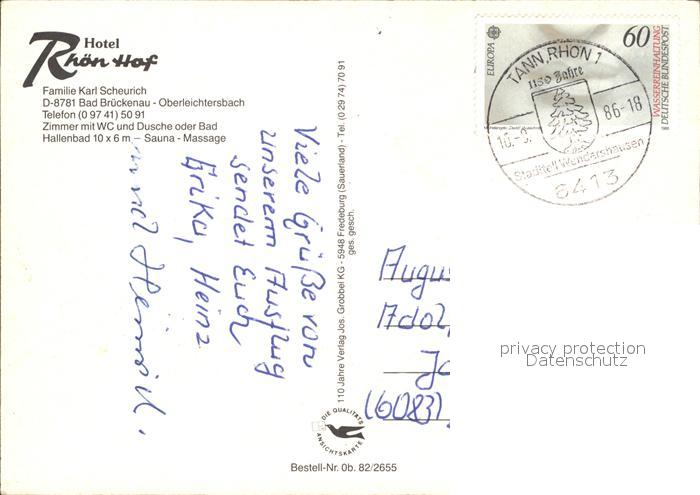 Hotel
Rhön Hof
Familie Karl Scheurich
D-8781 Bad Brückenau - Oberleichtersbach
Telefon (0 97 41) 50 91
Zimmer mit WC und Dusche oder Bad
Hallenbad 10 x 6 m – Sauna - Massage
Viele Grüße von
unserem Ausflug
sendet Euch
Erika, Heinz
und
110 Jahre Verlag Jos. Grobbel KG - 5948 Fredeburg (Sauerland) - Tel. (0 29 74) 70 91
ges. gesch.
DIE QUALITÄTS
ANSICHTSKARTE
Bestell-Nr. 0b. 82/2655
EUROPA
60
WASSERREINHALTUNG
DEUTSCHE BUNDESPOST
TANN, RHÖN 1
1150 Jahre
86-18
Stadtteil Wendershausen
6413
Augu
Adol
Jo
(6083)
privacy protection
Datenschutz